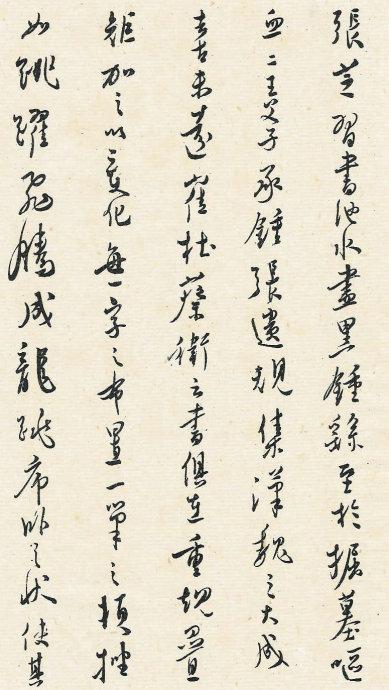 張芝習書池水盡黑鍾繇至於掘墓嘔
血二王父子承鍾張遺規集漢魏之大成
去古未遠崔杜蔡衛之書俱在重規疊
矩加之以變化每一字之布置一筆之頓挫
如跳躍飛騰成龍跳虎臥之狀使其